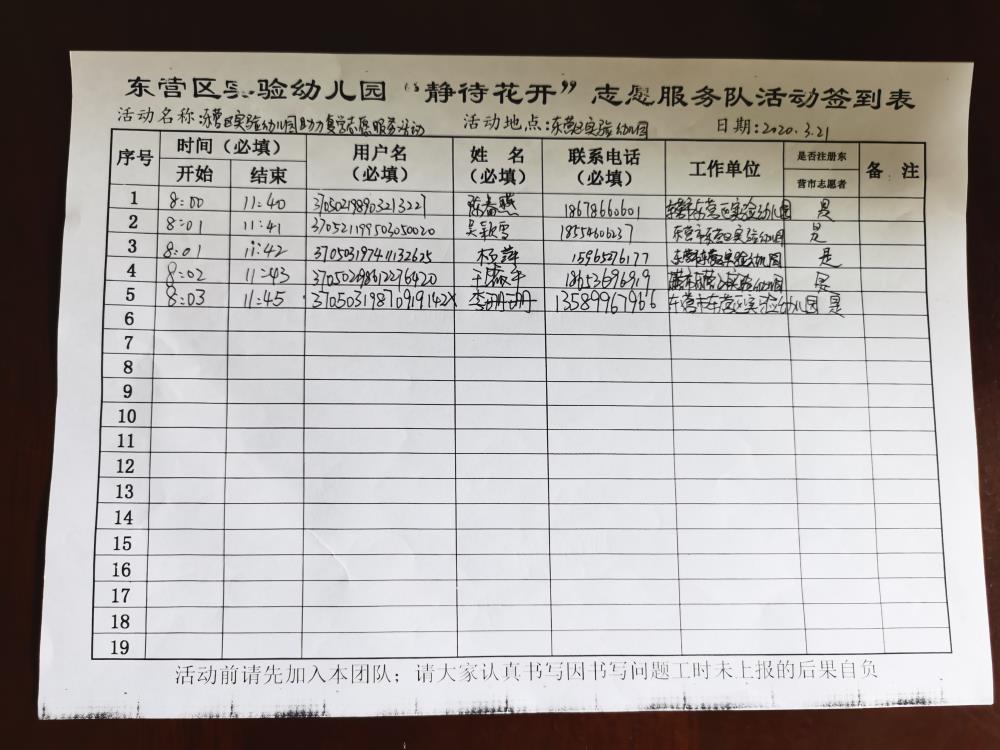 东营区实验幼儿园“静待花开”志愿服务队活动签到表
活动名称:东营区实验幼儿园助力复学志愿服务活动 活动地点:东营区实验幼儿园 日期:2020.3.21
序号 时间(必填) 用户名(必填) 姓 名(必填) 联系电话(必填) 工作单位 是否注册东营市志愿者 备 注
开始 结束
1 8:00 11:40 370502198903213227 18678666601 东营市东营区实验幼儿园 是
2 8:01 11:41 370521199503050020 吴颖雪 18554606237 东营市东营区实验幼儿园 是
3 8:01 11:42 370503197411132625 杨萍 15965276177 东营市东营区实验幼儿园 是
4 8:02 11:43 370502198612276420 东营市东营区实验幼儿园 是
5 8:03 11:45 37050319870919142X 李珊珊 13589967966 东营市东营区实验幼儿园 是
6
7
8
9
10
11
12
13
14
15
16
17
18
19
活动前请先加入本团队;请大家认真书写因书写问题工时未上报的后果自负